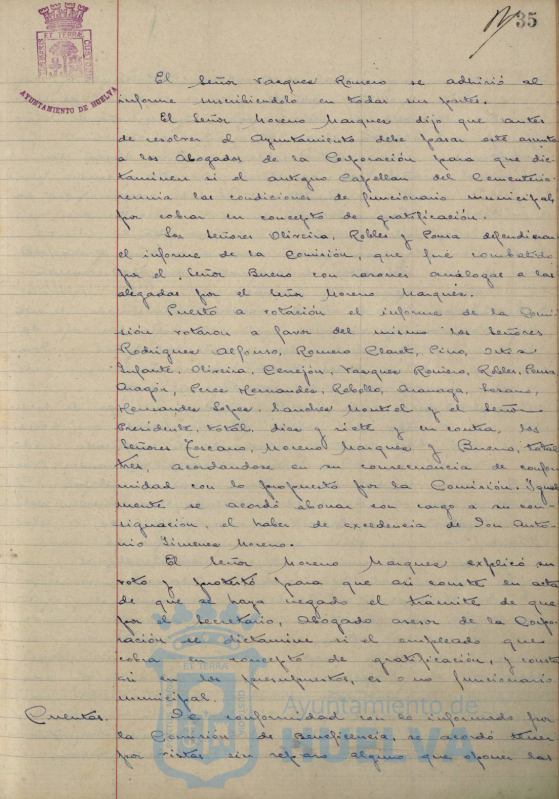 35
AYUNTAMIENTO DE HUELVA
El Señor Vazquez Romero se adhirió al
informe suscribiendolo en todas sus partes.
El Señor Moreno Marquez dijo que antes
de resolver el Ayuntamiento debe pasar este asunto
a los Abogados de la Corporación para que dic-
taminen si el antiguo Capellan del Cementerio
reunia las condiciones de funcionario municipal
por cobrar en concepto de gratificación.
Los Señores Oliveira, Robles y Ponsa defendieron
el informe de la Comisión, que fué combatido
por el Señor Bueno con razones análogas a las
alegadas por el Señor Moreno Marquez.
Puesto a votación el informe de la Comi-
sión votaron a favor del mismo los Señores
Rodriguez Alfonso, Romero Claret, Pino, Ortiz
Infante, Oliveira, Cerrejón, Vazquez Romero, Robles, Ponsa
Aragón, Perez Hernandez, Rebollo, Lozano,
Hernandez Lopez, Sanchez Montiel y el Señor
Presidente, total, diez y siete y en contra, los
Señores Toscano, Moreno Marquez y Bueno, total
tres, acordandose en su consecuencia de confor-
midad con lo propuesto por la Comisión. Igual
mente se acordó abonar con cargo a su con-
signación, el haber de excedencia de Don Anto-
nio Jimenez Moreno.
El Señor Moreno Marquez explicó su
voto y protestó para que asi conste en acta
de que se haya negado el trámite de que
por el Secretario, Abogado asesor de la Corpo-
ración se dictamine si el empleado que
cobra en concepto de gratificación, y consta
asi en los presupuestos, es o no funcionario
municipal.
Cuentas. De conformidad con lo informado por
la Comisión de Beneficencia, se acordó tener
por vistas sin reparo alguno que oponer las
Ayuntamiento de
HUELVA